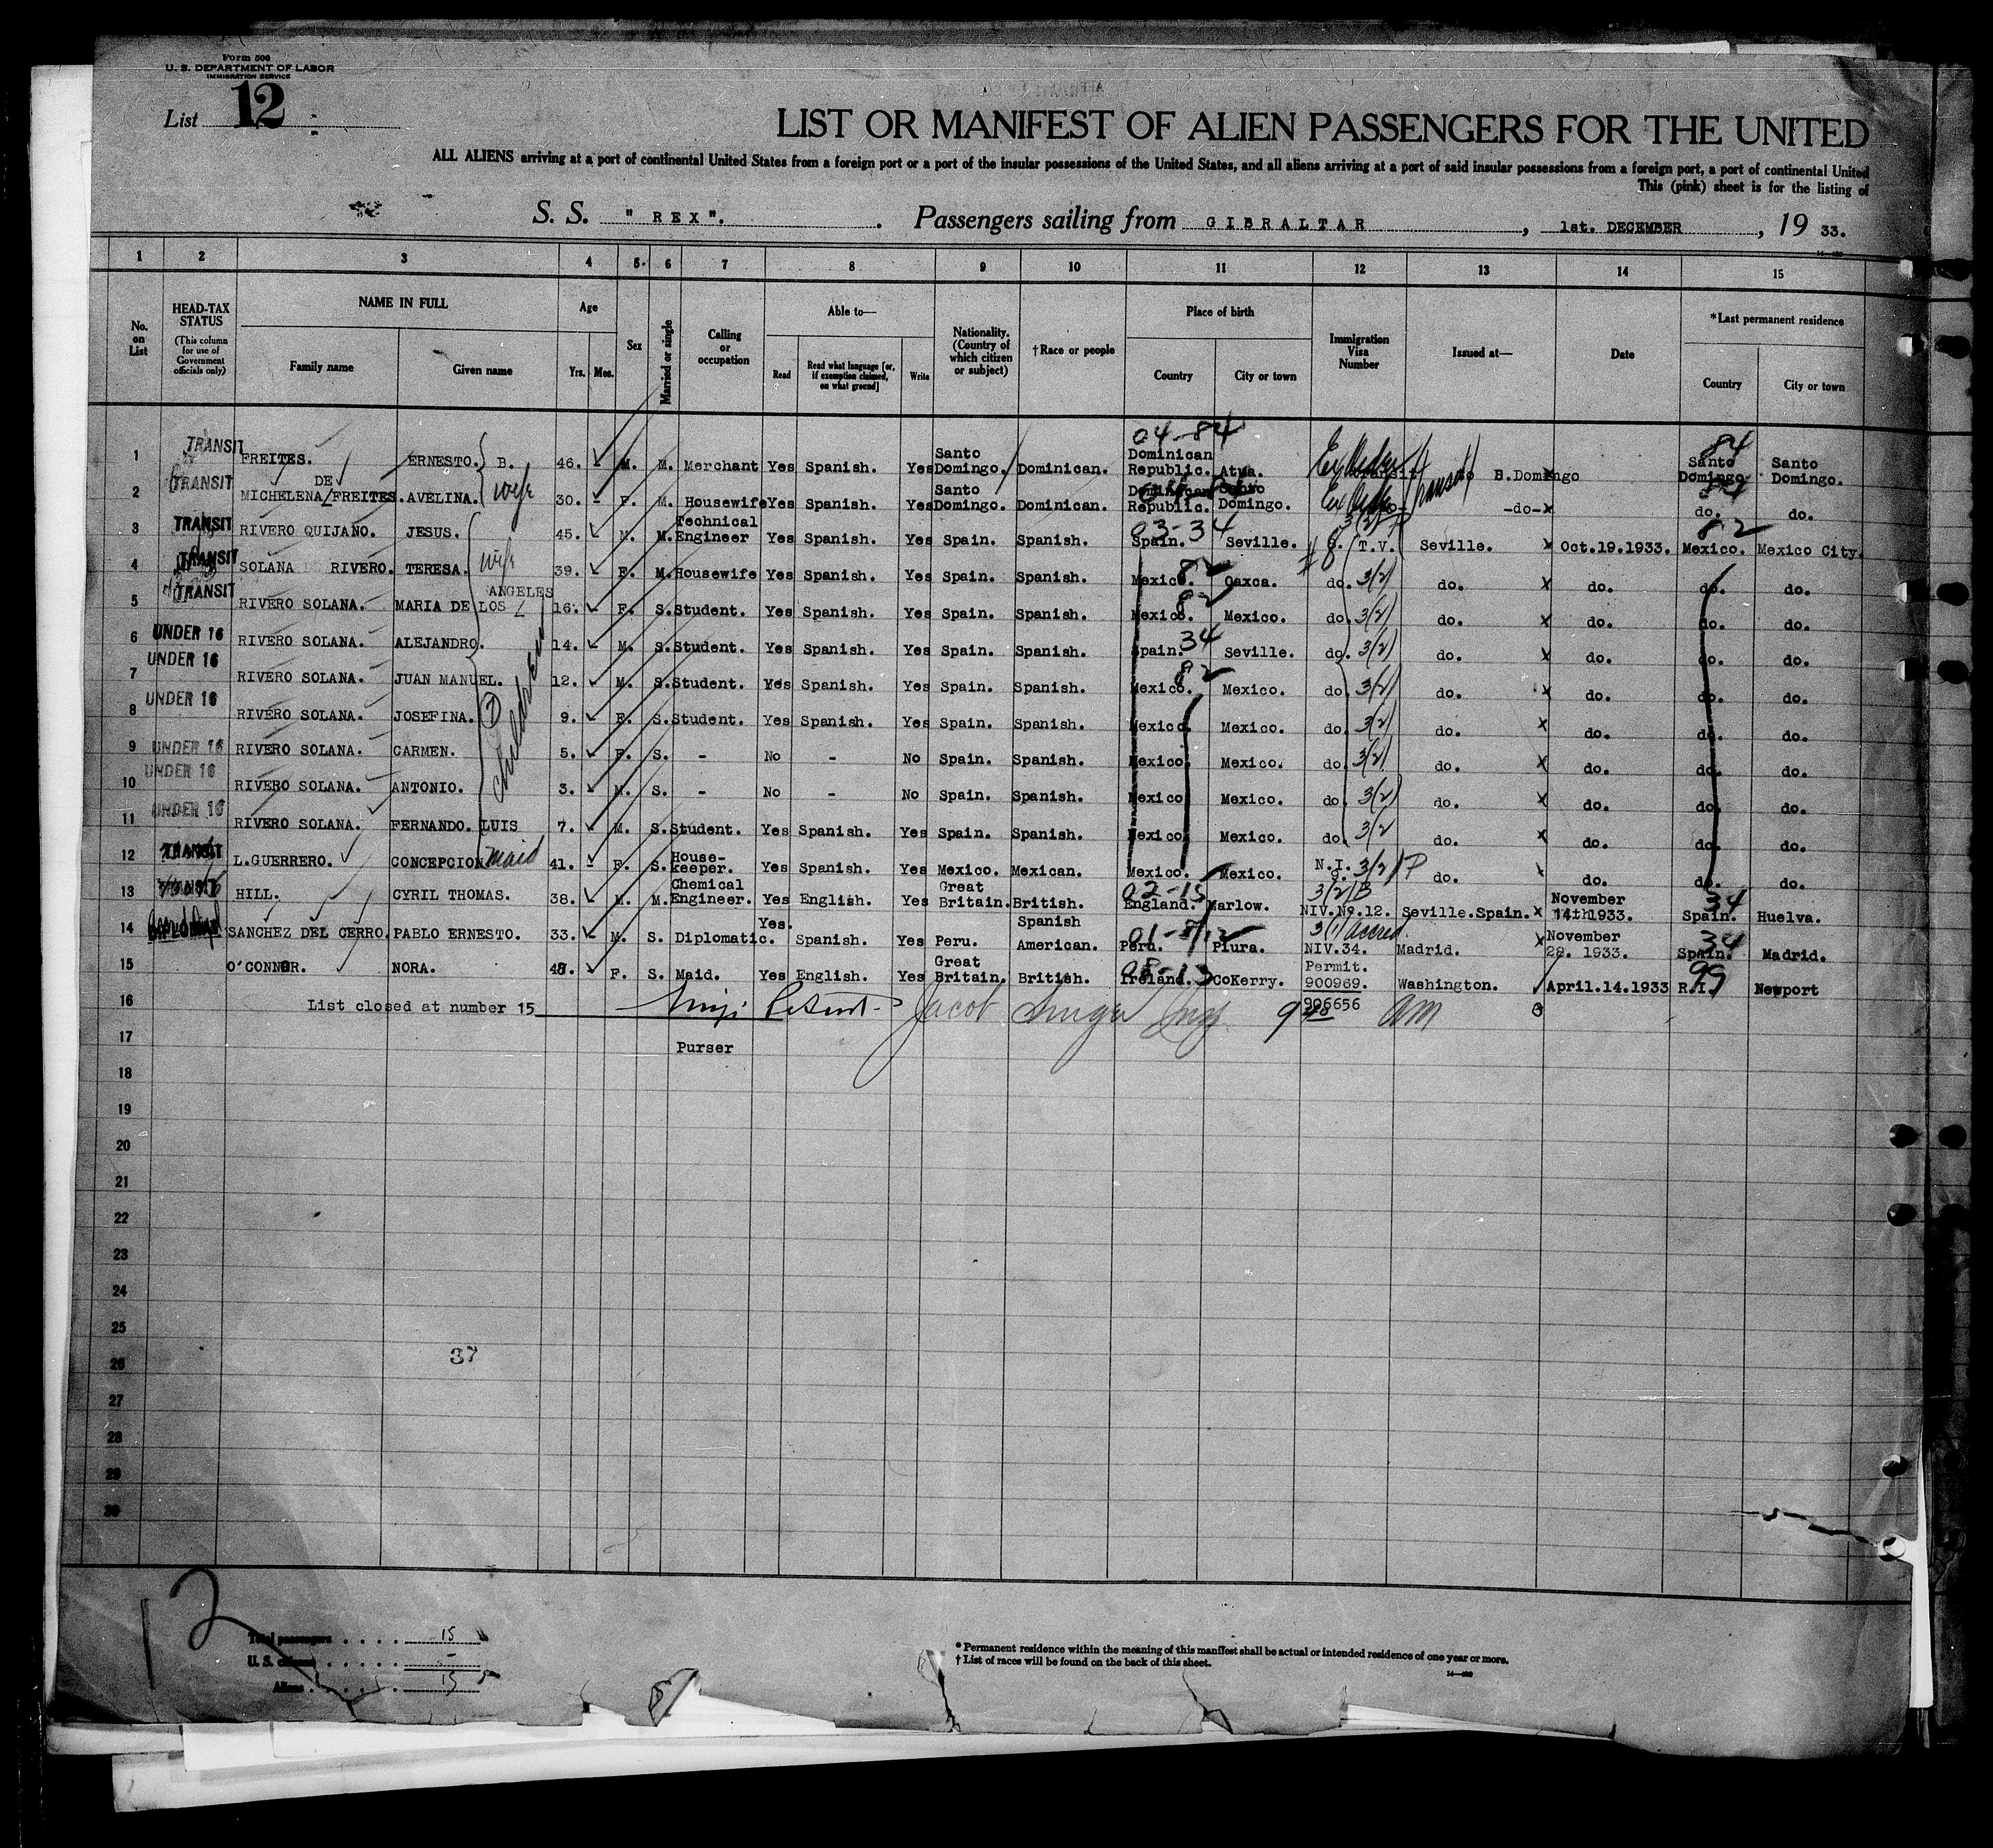 Form 500
U. S. DEPARTMENT OF LABOR
IMMIGRATION SERVICE
List 12
LIST OR MANIFEST OF ALIEN PASSENGERS FOR THE UNITED
ALL ALIENS arriving at a port of continental United States from a foreign port or a port of the insular possessions of the United States, and all aliens arriving at a port of said insular possessions from a foreign port, a port of continental United
This (pink) sheet is for the listing of
S. S. "REX". Passengers sailing from GIBRALTAR, 1st. DECEMBER, 19 33.
1 2 3 4 5 6 7 8 9 10 11 12 13 14 15
No. on List
HEAD-TAX STATUS
(This column for use of Government officials only)
NAME IN FULL
Family name Given name
Age
Yrs. Mos.
Sex
Married or single
Calling or occupation
Able to—
Read Read what language [or, if exemption claimed, on what ground] Write
Nationality. (Country of which citizen or subject)
†Race or people
Place of birth
Country City or town
Immigration Visa Number
Issued at—
Date
*Last permanent residence
Country City or town
1 TRANSIT FREITES. ERNESTO. B. 46. - M. M. Merchant Yes Spanish. Yes Santo Domingo. Dominican. 04-84 Dominican Republic. Atua. S.Domingo 84 Santo Domingo. Santo Domingo.
2 TRANSIT MICHELENA DE FREITES. AVELINA. wife 30. - F. M. Housewife Yes Spanish. Yes Santo Domingo. Dominican. Dominican Republic. Santo Domingo. Transit -do- x do. do.
3 TRANSIT RIVERO QUIJANO. JESUS. 45. M. M. Technical Engineer Yes Spanish. Yes Spain. Spanish. 03-34 Spain. Seville. T.V. Seville. x Oct.19.1933. 82 Mexico. Mexico City.
4 TRANSIT SOLANA RIVERO. TERESA. wife 39. F. M. Housewife Yes Spanish. Yes Spain. Spanish. 82 Mexico. Oaxca. do. 3(2) do. x do. do. do.
5 TRANSIT RIVERO SOLANA. MARIA DE LOS ANGELES 16. F. S. Student. Yes Spanish. Yes Spain. Spanish. 82 Mexico. Mexico. do. 3(2) do. x do. do. do.
6 UNDER 16 RIVERO SOLANA. ALEJANDRO. 14. M. S. Student. Yes Spanish. Yes Spain. Spanish. 34 Spain. Seville. do. 3(2) do. x do. do. do.
7 UNDER 16 RIVERO SOLANA. JUAN MANUEL. 12. M. S. Student. Yes Spanish. Yes Spain. Spanish. 82 Mexico. Mexico. do. 3(2) do. x do. do. do.
8 UNDER 16 RIVERO SOLANA. JOSEFINA. (7) children 9. F. S. Student. Yes Spanish. Yes Spain. Spanish. Mexico. Mexico. do. 3(2) do. x do. do. do.
9 UNDER 16 RIVERO SOLANA. CARMEN. 5. F. S. - No - No Spain. Spanish. Mexico. Mexico. do. 3(2) do. x do. do. do.
10 UNDER 16 RIVERO SOLANA. ANTONIO. 3. M. S. - No - No Spain. Spanish. Mexico Mexico. do. 3(2) do. x do. do. do.
11 UNDER 16 RIVERO SOLANA. FERNANDO. LUIS 7. M. S. Student. Yes Spanish. Yes Spain. Spanish. Mexico Mexico. do. 3(2 do. x do. do. do.
12 TRANSIT L.GUERRERO. CONCEPCION. maid 41. - F. S. House-keeper. Yes Spanish. Yes Mexico. Mexican. Mexico. Mexico. N.I. 3(2)P do. do. do. do.
13 TRANSIT HILL. CYRIL THOMAS. 38. M. M. Chemical Engineer. Yes English. Yes Great Britain. British. 02-15 England. Marlow. 3(2)B NIV.No.12. Seville.Spain. x November 14th1933. 34 Spain. Huelva.
14 SANCHEZ DEL CERRO. PABLO ERNESTO. 33. - M. S. Diplomatic. Yes. Spanish. Yes Peru. Spanish American. Peru. Piura. 3(1) accred. NIV.34. Madrid. x November 28. 1933. 34 Spain. Madrid.
15 O'CONNOR. NORA. 48. F. S. Maid. Yes English. Yes Great Britain. British. 08-13 Ireland. CoKerry. Permit. 900969. Washington. April.14.1933 99 R.I. Newport
16 List closed at number 15 Jacob 906656 am
17 Purser
18
19
20
21
22
23
24
25
26
27
28
29
30
37
2
Total passengers . . . . 15
U. S. citizens . . . . . -
Aliens . . . . . 15
* Permanent residence within the meaning of this manifest shall be actual or intended residence of one year or more.
† List of races will be found on the back of this sheet.